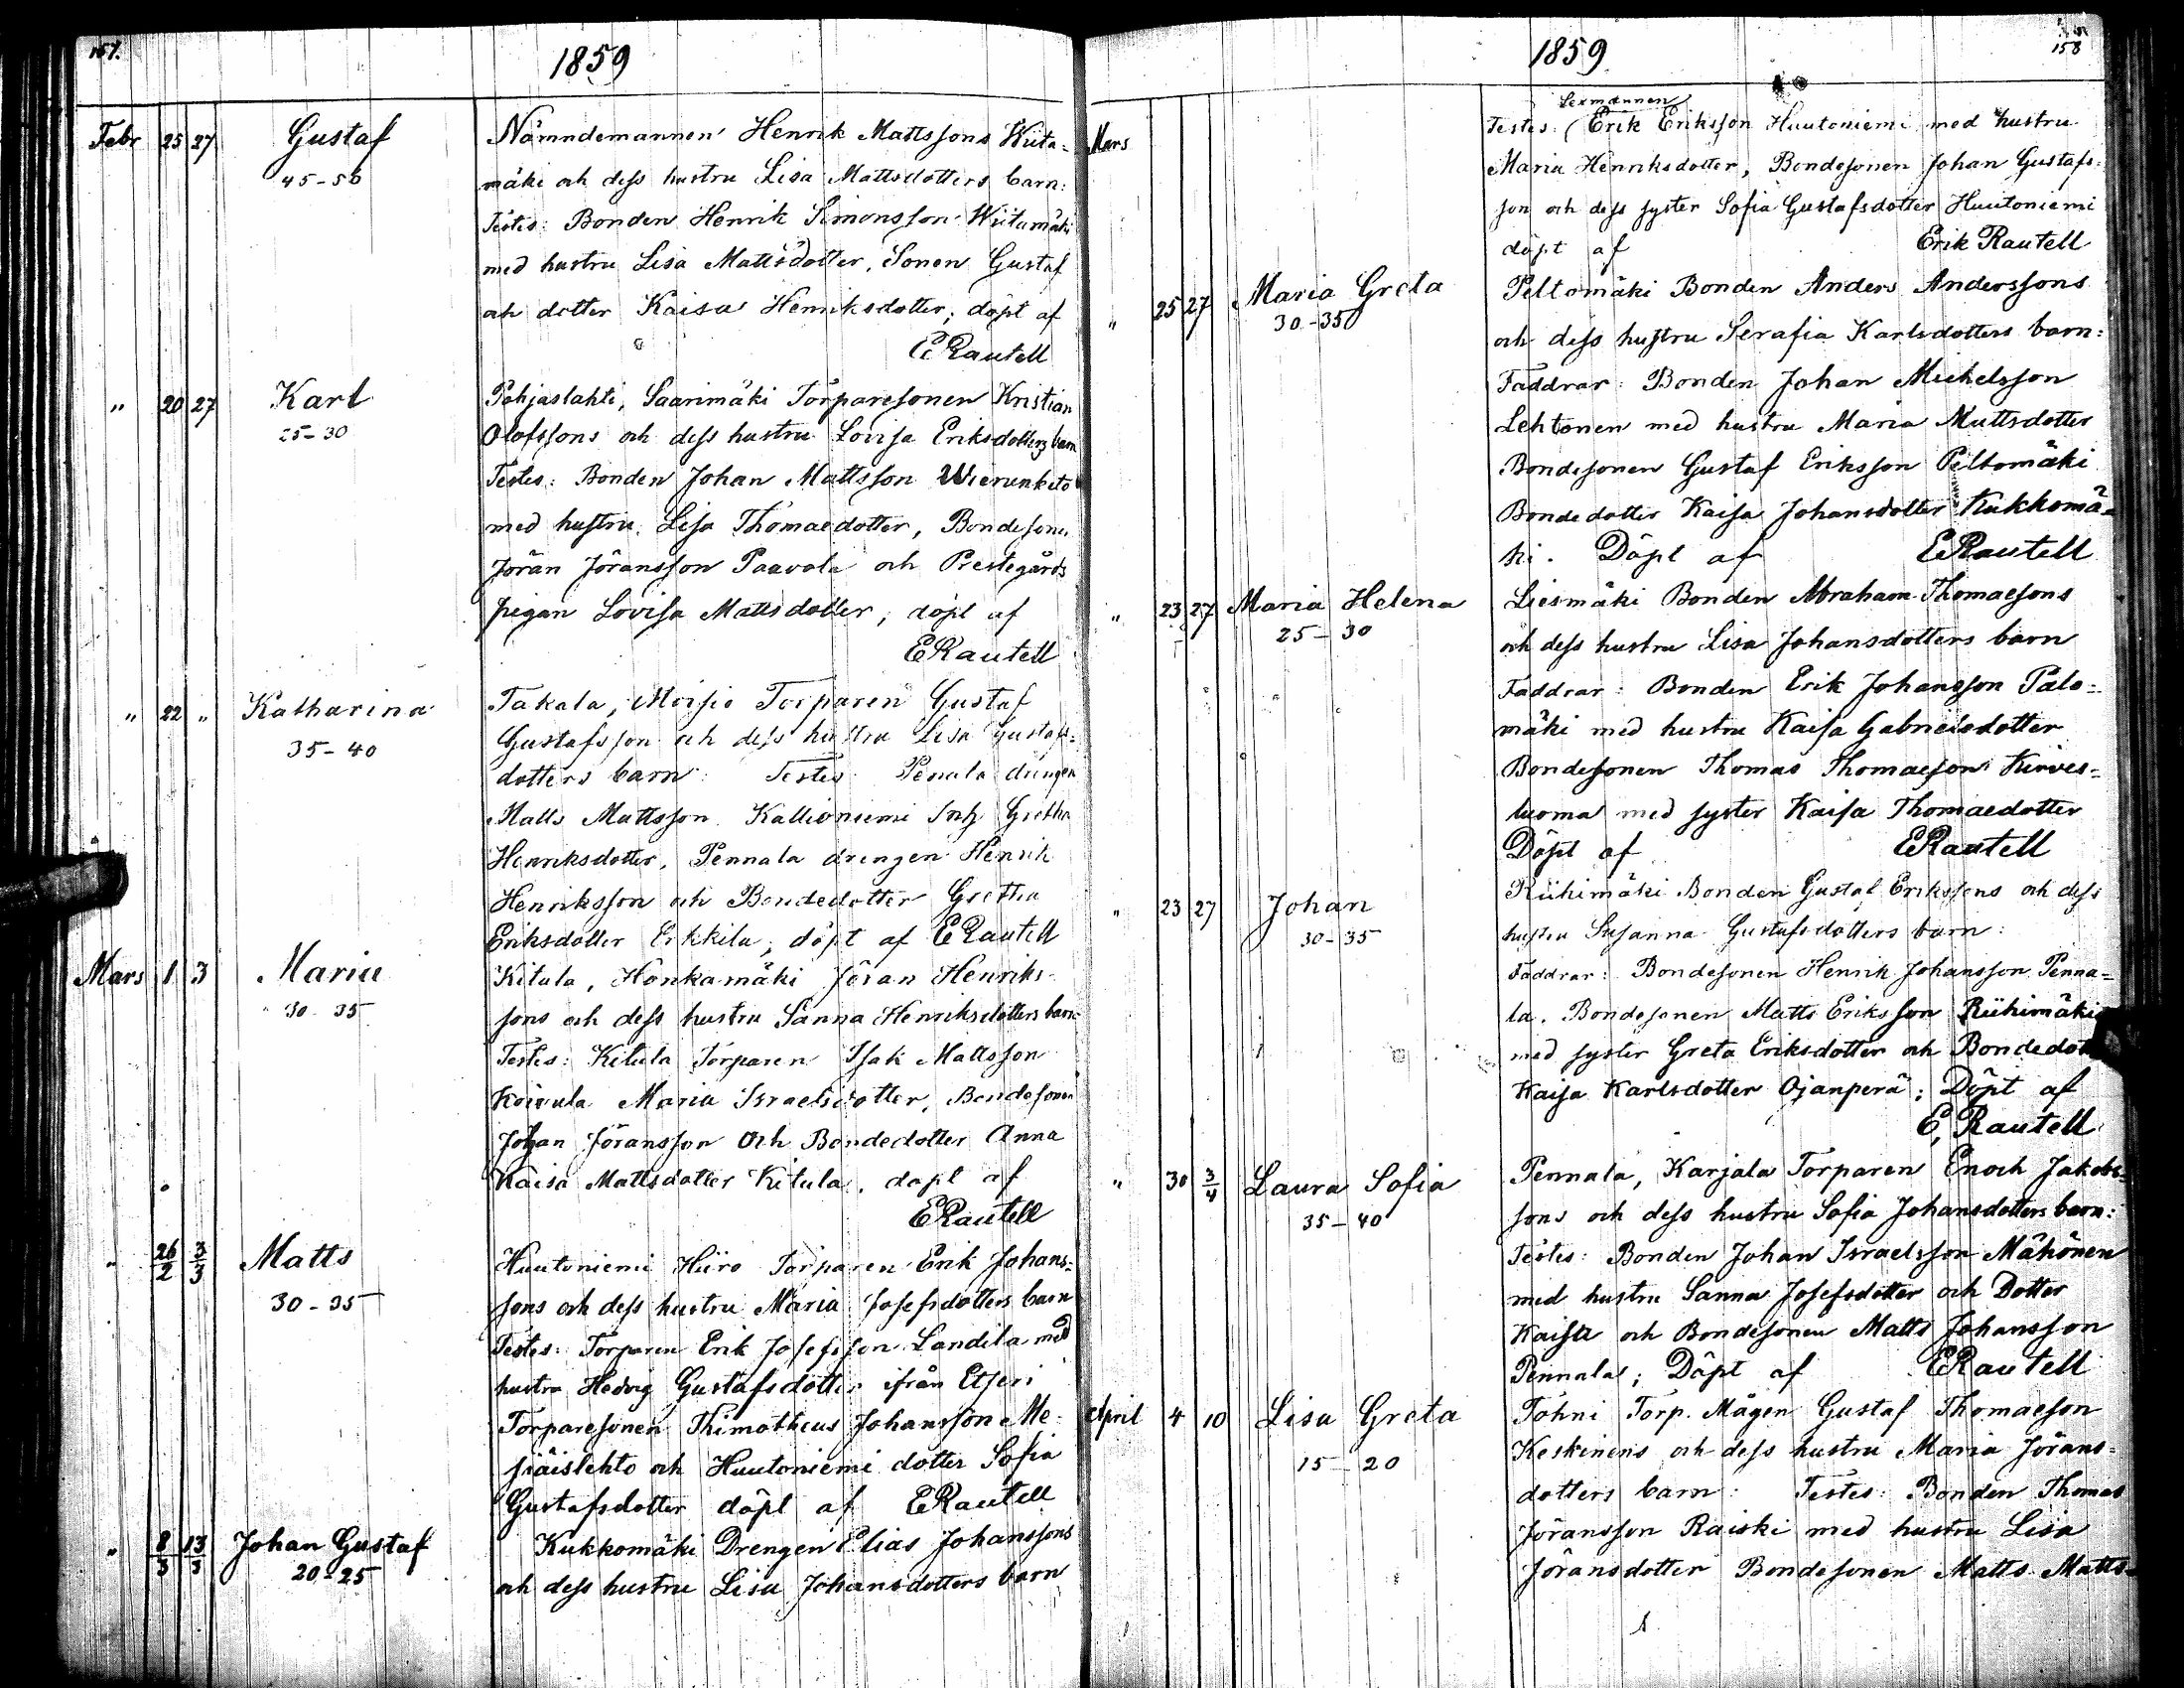 157.
1859
Febr 25 27 Gustaf
45-50
Nämndemannen Henrik Mattssons Wiita=
mäki och dess hustru Lisa Mattsdotters barn:
Testes: Bonden Henrik Simonsson Wiitamäki
med hustru Lisa Mattsdotter, Sonen Gustaf
och dotter Kaisa Henriksdotter; döpt af
E Rautell
" 20 27 Karl
25-30
Pohjaslahti, Saarimäki Torparesonen Kristian
Olofssons och dess hustru Lovisa Eriksdotters barn
Testes: Bonden Johan Mattsson Wierunketo
med hustru Lisa Thomaedotter, Bondesonen
Jöran Jöransson Paavola och Prestegårds
pigan Lovisa Mattsdotter; döpt af
E Rautell
" 22 " Katharina
35-40
Takala, Moisio Torparen Gustaf
Gustafsson och dess hustru Lisa Gustafs=
dotters barn: Testes: Penala drengen
Matts Mattsson Kallioniemi Inh Gretha
Henriksdotter, Pennala drengen Henrik
Henriksson och Bondedotter Gretha
Eriksdotter Erkkila; döpt af E Rautell
Mars 1 3 Maria
30-35
Kitula, Honkamäki Jöran Henriks-
sons och dess hustru Sanna Henriksdotters barn:
Testes: Kitula Torparen Isak Mattsson
Koivula Maria Israelsdotter, Bondesonen
Johan Jöransson och Bondedotter Anna
Kaisa Mattsdotter Kitula, döpt af
E Rautell
" 26/2 3/3 Matts
30-35
Huutoniemi Hiiro Torparen Erik Johans=
sons och dess hustru Maria Josefsdotters barn
Testes: Torparen Erik Josefsson Landila med
hustru Hedvig Gustafsdotter ifrån Etseri
Torparesonen Thimotheus Johansson Me-
siäislehto och Huutoniemi dotter Sofia
Gustafsdotter döpt af E Rautell
" 8/3 13/3 Johan Gustaf
20-25
Kukkomäki Drengen Elias Johanssons
och dess hustru Lisa Johansdotters barn
158
1859
Mars
Sexmannen
Testes: (Erik Eriksson Huutoniemi med hustru
Maria Henriksdotter, Bondesonen Johan Gustafs=
son och dess syster Sofia Gustafsdotter Huutoniemi
döpt af Erik Rautell
" 25 27 Maria Greta
30-35
Peltomäki Bonden Anders Anderssons
och dess hustru Serafia Karlsdotters barn:
Faddrar: Bonden Johan Michelsson
Lehtonen med hustru Maria Mattsdotter
Bondesonen Gustaf Eriksson Peltomäki
Bondedotter Kaisa Johansdotter Kukkomä=
ki. Döpt af E Rautell
" 23 27 Maria Helena
25-30
Liesmäki Bonden Abraham Thomaesons
och dess hustru Lisa Johansdotters barn
Faddrar: Bonden Erik Johansson Palo=
mäki med hustru Kaisa Gabrielsdotter
Bondesonen Thomas Thomaeson Kirves=
luoma med syster Kaisa Thomaedotter
Döpt af E Rautell
" 23 27 Johan
30-35
Riihimäki Bonden Gustaf Erikssons och dess
hustru Susanna Gustafsdotters barn:
Faddrar: Bondesonen Henrik Johansson Penna=
la, Bondesonen Matts Eriksson Riihimäki
med syster Greta Eriksdotter och Bondedot
Kaisa Karlsdotter Ojanperä; Döpt af
E, Rautell
" 30 3/4 Laura Sofia
35-40
Pennala, Karjala Torparen Enoch Jakobs=
sons och dess hustru Sofia Johansdotters barn:
Testes: Bonden Johan Israelsson Mähönen
med hustru Sanna Josefsdotter och Dotter
Kaisa och Bondesonen Matts Johansson
Pennala; Döpt af E Rautell
April 4 10 Lisa Greta
15-20
Töhni Torp. Mågen Gustaf Thomaeson
Keskinens och dess hustru Maria Jörans=
dotters barn: Testes: Bonden Thomas
Jöransson Raiski med hustru Lisa
Jöransdotter Bondesonen Matts Matts=